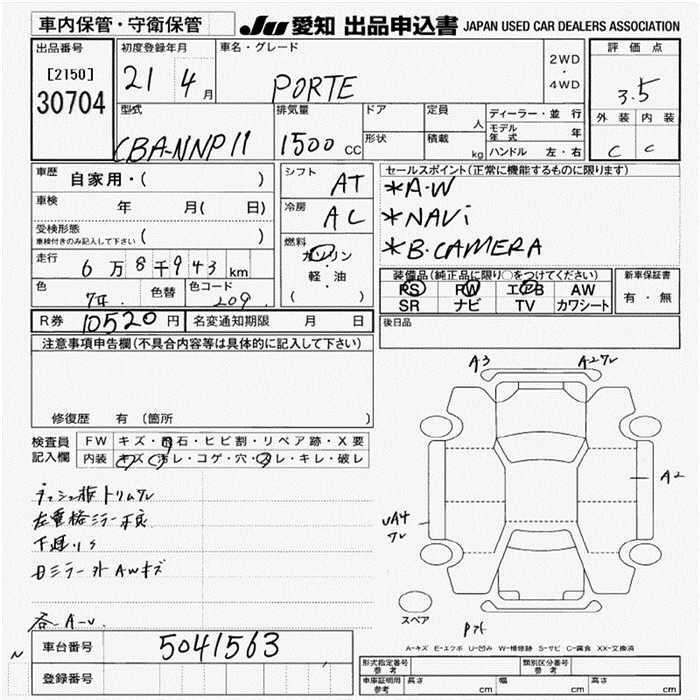 車内保管・守衛保管
JU 愛知 出品申込書 JAPAN USED CAR DEALERS ASSOCIATION
出品番号
[2150]
30704
初度登録年月
21 4 月
車名・グレード
PORTE
2WD
・
4WD
評価点
3.5
外装 内装
C C
型式
CBA-NNP11
排気量
1500 CC
ドア
形状
定員
人
積載
kg
ディーラー・並行
モデル年式 年
ハンドル 左・右
車歴 自家用・( )
車検 年 月( 日)
受検形態
車検付きのみ記入して下さい ( )
走行 6万8千943km
色 色替 色コード
209
シフト
AT
冷房
AC
燃料
ガソリン
・
軽・油
( )
セールスポイント(正常に機能するものに限ります)
*A・W
*NAVi
*B.CAMERA
装備品(純正品に限り○をつけてください)
PS PW エアB AW
SR ナビ TV カワシート
新車保証書
有・無
後日品
R券 10520円 名変通知期限 月 日
注意事項申告欄(不具合内容等は具体的に記入して下さい)
修復歴 有 (箇所 )
検査員
記入欄
FW キズ・飛石・ヒビ割・リペア跡・X要
内装 キズ・汚レ・コゲ・穴・スレ・キレ・破レ
A3
A2
A2
UA4
スペア
A-キズ E-エクボ U-凹み W-補修跡 S-サビ C-腐食 XX-交換済
車台番号 5041563
登録番号
形式指定番号
参考
類別区分番号
参考
車庫証明用
参考
長さ cm 幅 cm 高さ cm